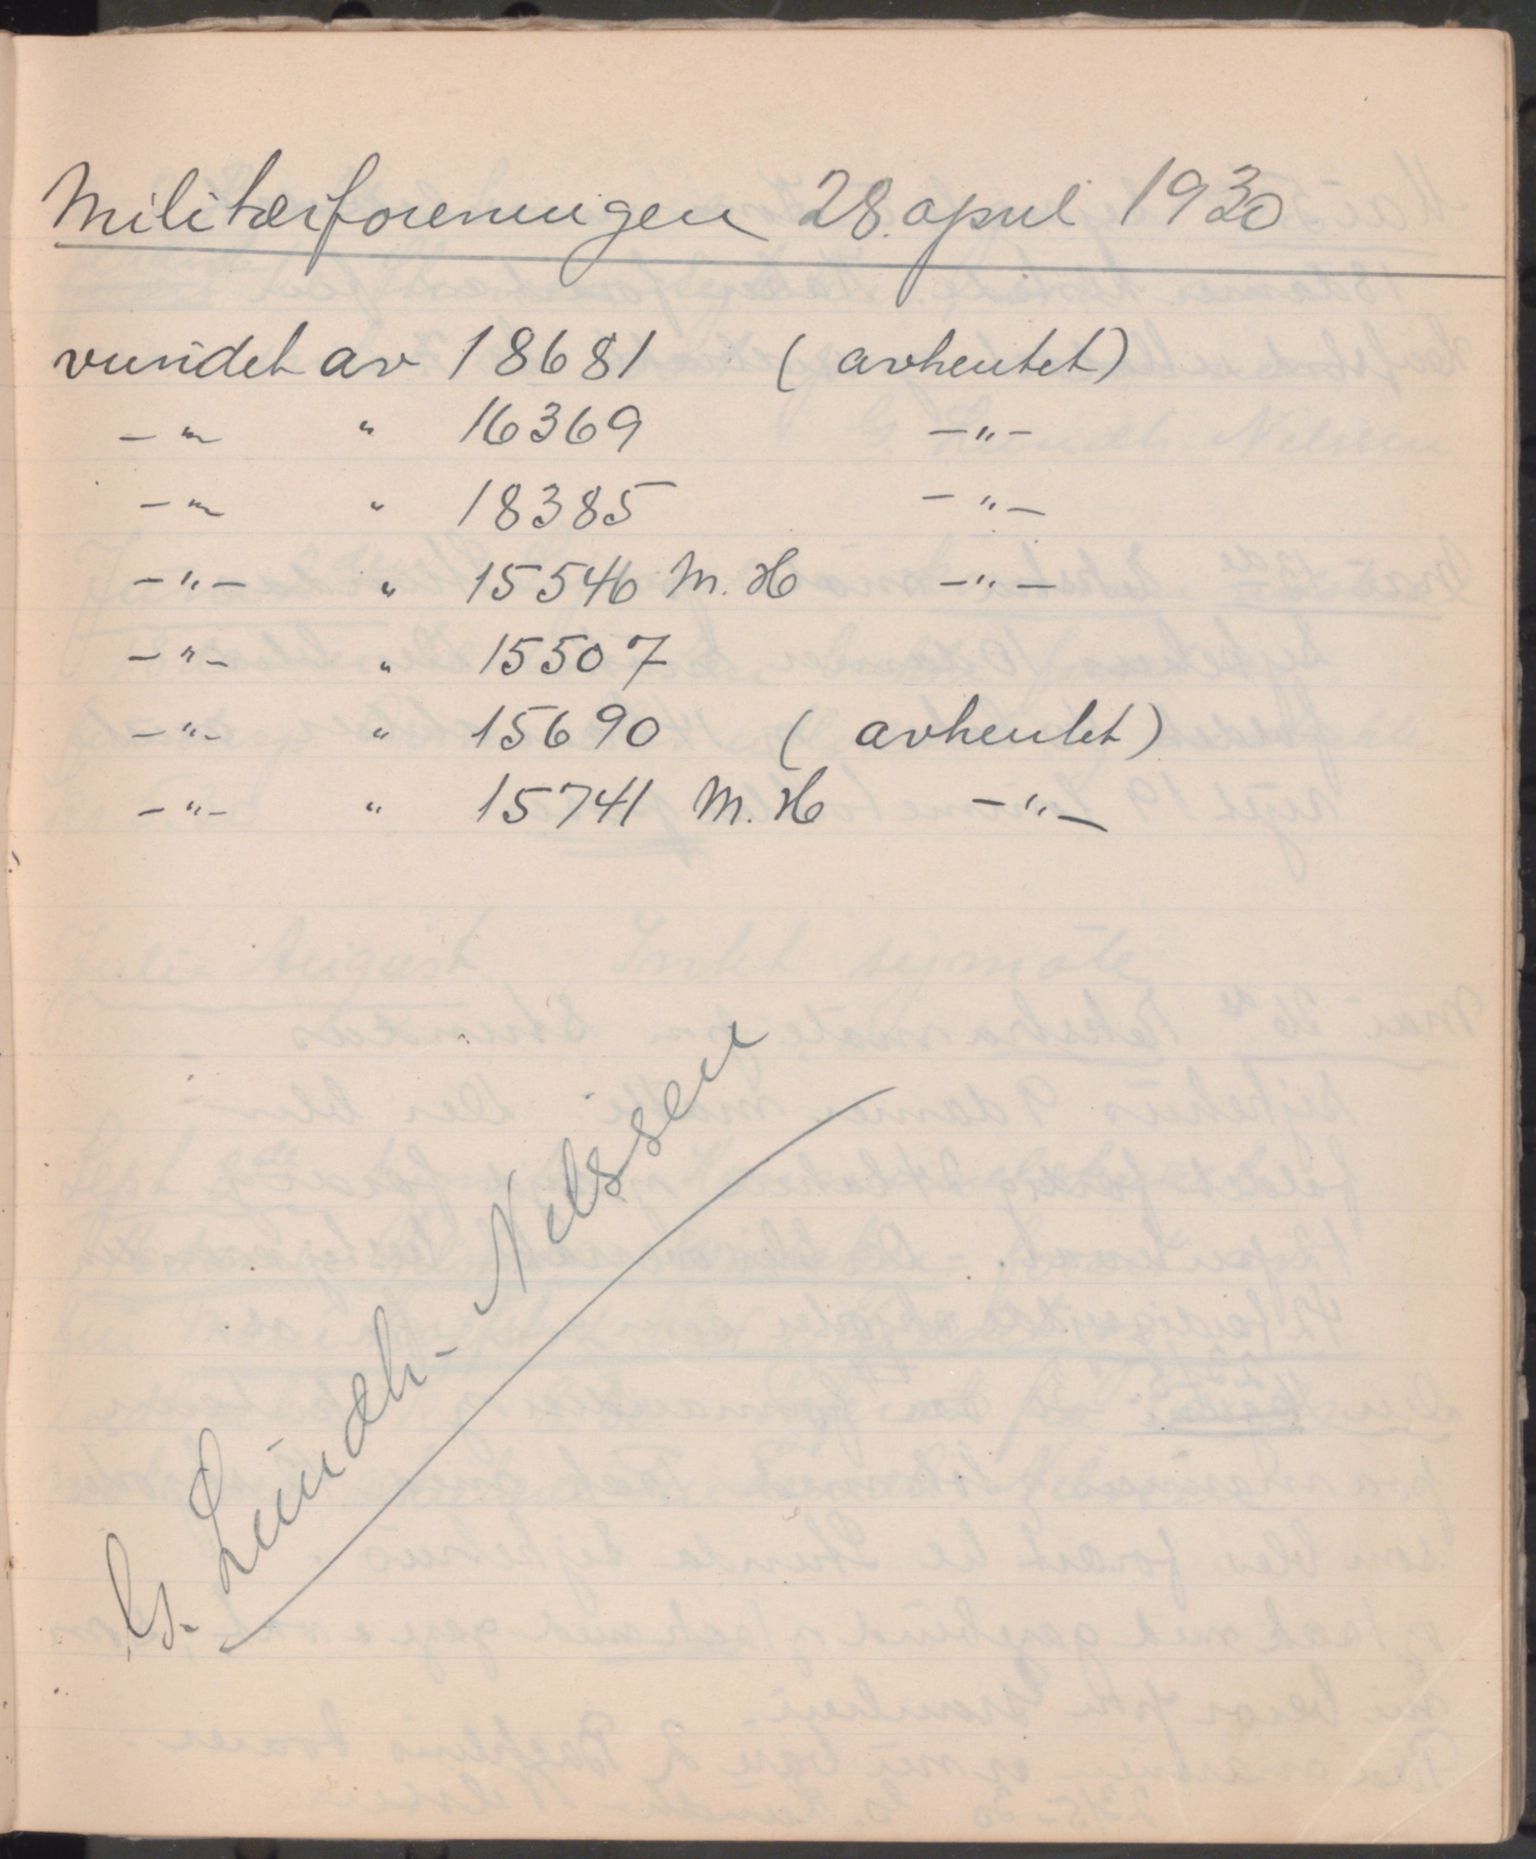 Militærforeningen 28. april 1930
vundet av 18681 ( avhentet )
-"- " 16369 -"-
-"- " 18385 -"-
-"- " 15546 M. H -"-
-"- " 15507
-"- " 15690 ( avhentet )
-"- " 15741 M. H -"-
G. Lundh-Nilssen